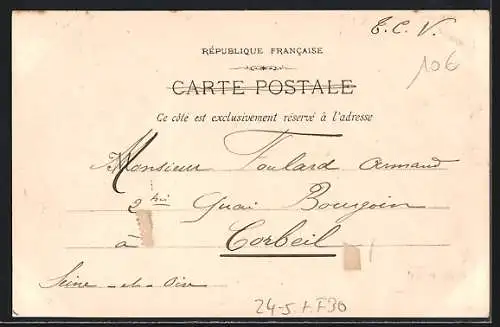 T. C. V.
10€
RÉPUBLIQUE FRANÇAISE
CARTE POSTALE
Ce côté est exclusivement réservé à l'adresse
Monsieur Foulard Armand
2 bis Quai Bourgoin
à Corbeil
Seine-et-Oise
24-5.